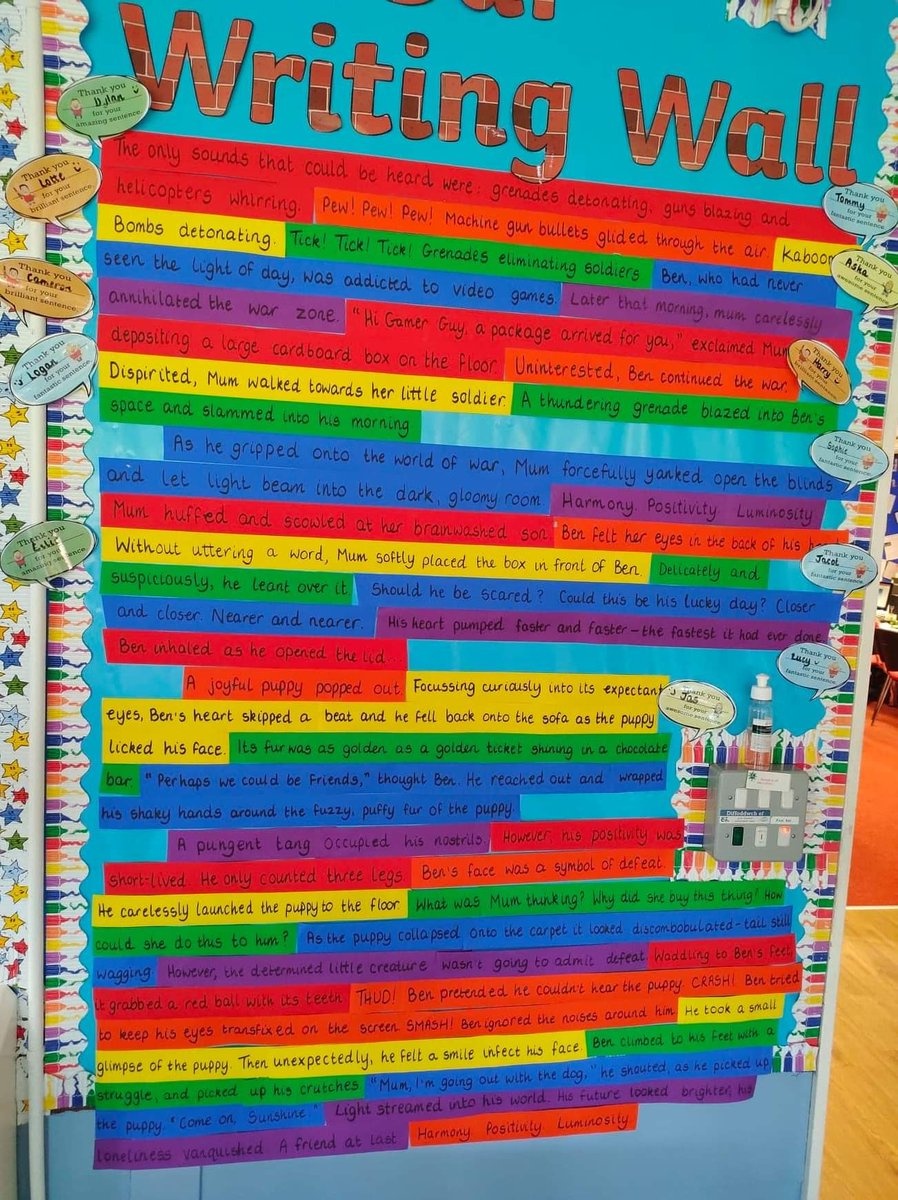 Writing Wall
Thank you Dylan for your amazing sentence
Thank you Lotte for your brilliant sentence
Thank you Cameron for your brilliant sentence
Thank you Logan for your fantastic sentence
Thank you for your amazing sentence
Thank you Tommy for your fantastic sentence
Thank you for your awesome sentence
Thank you Harry for your
Thank you Sophie for your fantastic sentence
Thank you Jacob for your fantastic sentence
Thank you Lucy for your fantastic sentence
Thank you Jas for your awesome sentence
The only sounds that could be heard were: grenades detonating, guns blazing and
helicopters whirring. Pew! Pew! Pew! Machine gun bullets glided through the air. Kaboom
Bombs detonating. Tick! Tick! Tick! Grenades eliminating soldiers Ben, who had never
seen the light of day, was addicted to video games. Later that morning, mum carelessly
annihilated the war zone. "Hi Gamer Guy, a package arrived for you," exclaimed Mum
depositing a large cardboard box on the floor. Uninterested, Ben continued the war.
Dispirited, Mum walked towards her little soldier. A thundering grenade blazed into Ben's
space and slammed into his morning
As he gripped onto the world of war, Mum forcefully yanked open the blinds
and let light beam into the dark, gloomy room. Harmony. Positivity Luminosity
Mum huffed and scowled at her brainwashed son. Ben felt her eyes in the back of his
Without uttering a word, Mum softly placed the box in front of Ben. Delicately and
suspiciously, he leant over it. Should he be scared? Could this be his lucky day? Closer
and closer. Nearer and nearer. His heart pumped faster and faster - the fastest it had ever done.
Ben inhaled as he opened the lid...
A joyful puppy popped out. Focussing curiously into its expectant
eyes, Ben's heart skipped a beat and he fell back onto the sofa as the puppy
licked his face. Its fur was as golden as a golden ticket shining in a chocolate
bar. "Perhaps we could be Friends," thought Ben. He reached out and wrapped
his shaky hands around the fuzzy, puffy fur of the puppy.
A pungent tang occupied his nostrils. However, his positivity was
short-lived. He only counted three legs. Ben's face was a symbol of defeat.
He carelessly launched the puppy to the floor. What was Mum thinking? Why did she buy this thing? How
could she do this to him? As the puppy collapsed onto the carpet it looked discombobulated - tail still
wagging. However, the determined little creature wasn't going to admit defeat. Waddling to Ben's feet,
it grabbed a red ball with its teeth. THUD! Ben pretended he couldn't hear the puppy. CRASH! Ben tried
to keep his eyes transfixed on the screen. SMASH! Ben ignored the noises around him. He took a small
glimpse of the puppy. Then unexpectedly, he felt a smile infect his face. Ben climbed to his feet with a
struggle, and picked up his crutches. "Mum, I'm going out with the dog," he shouted, as he picked up
the puppy. "Come on, Sunshine." Light streamed into his world. His future looked brighter, his
loneliness vanquished. A friend at last. Harmony. Positivity. Luminosity